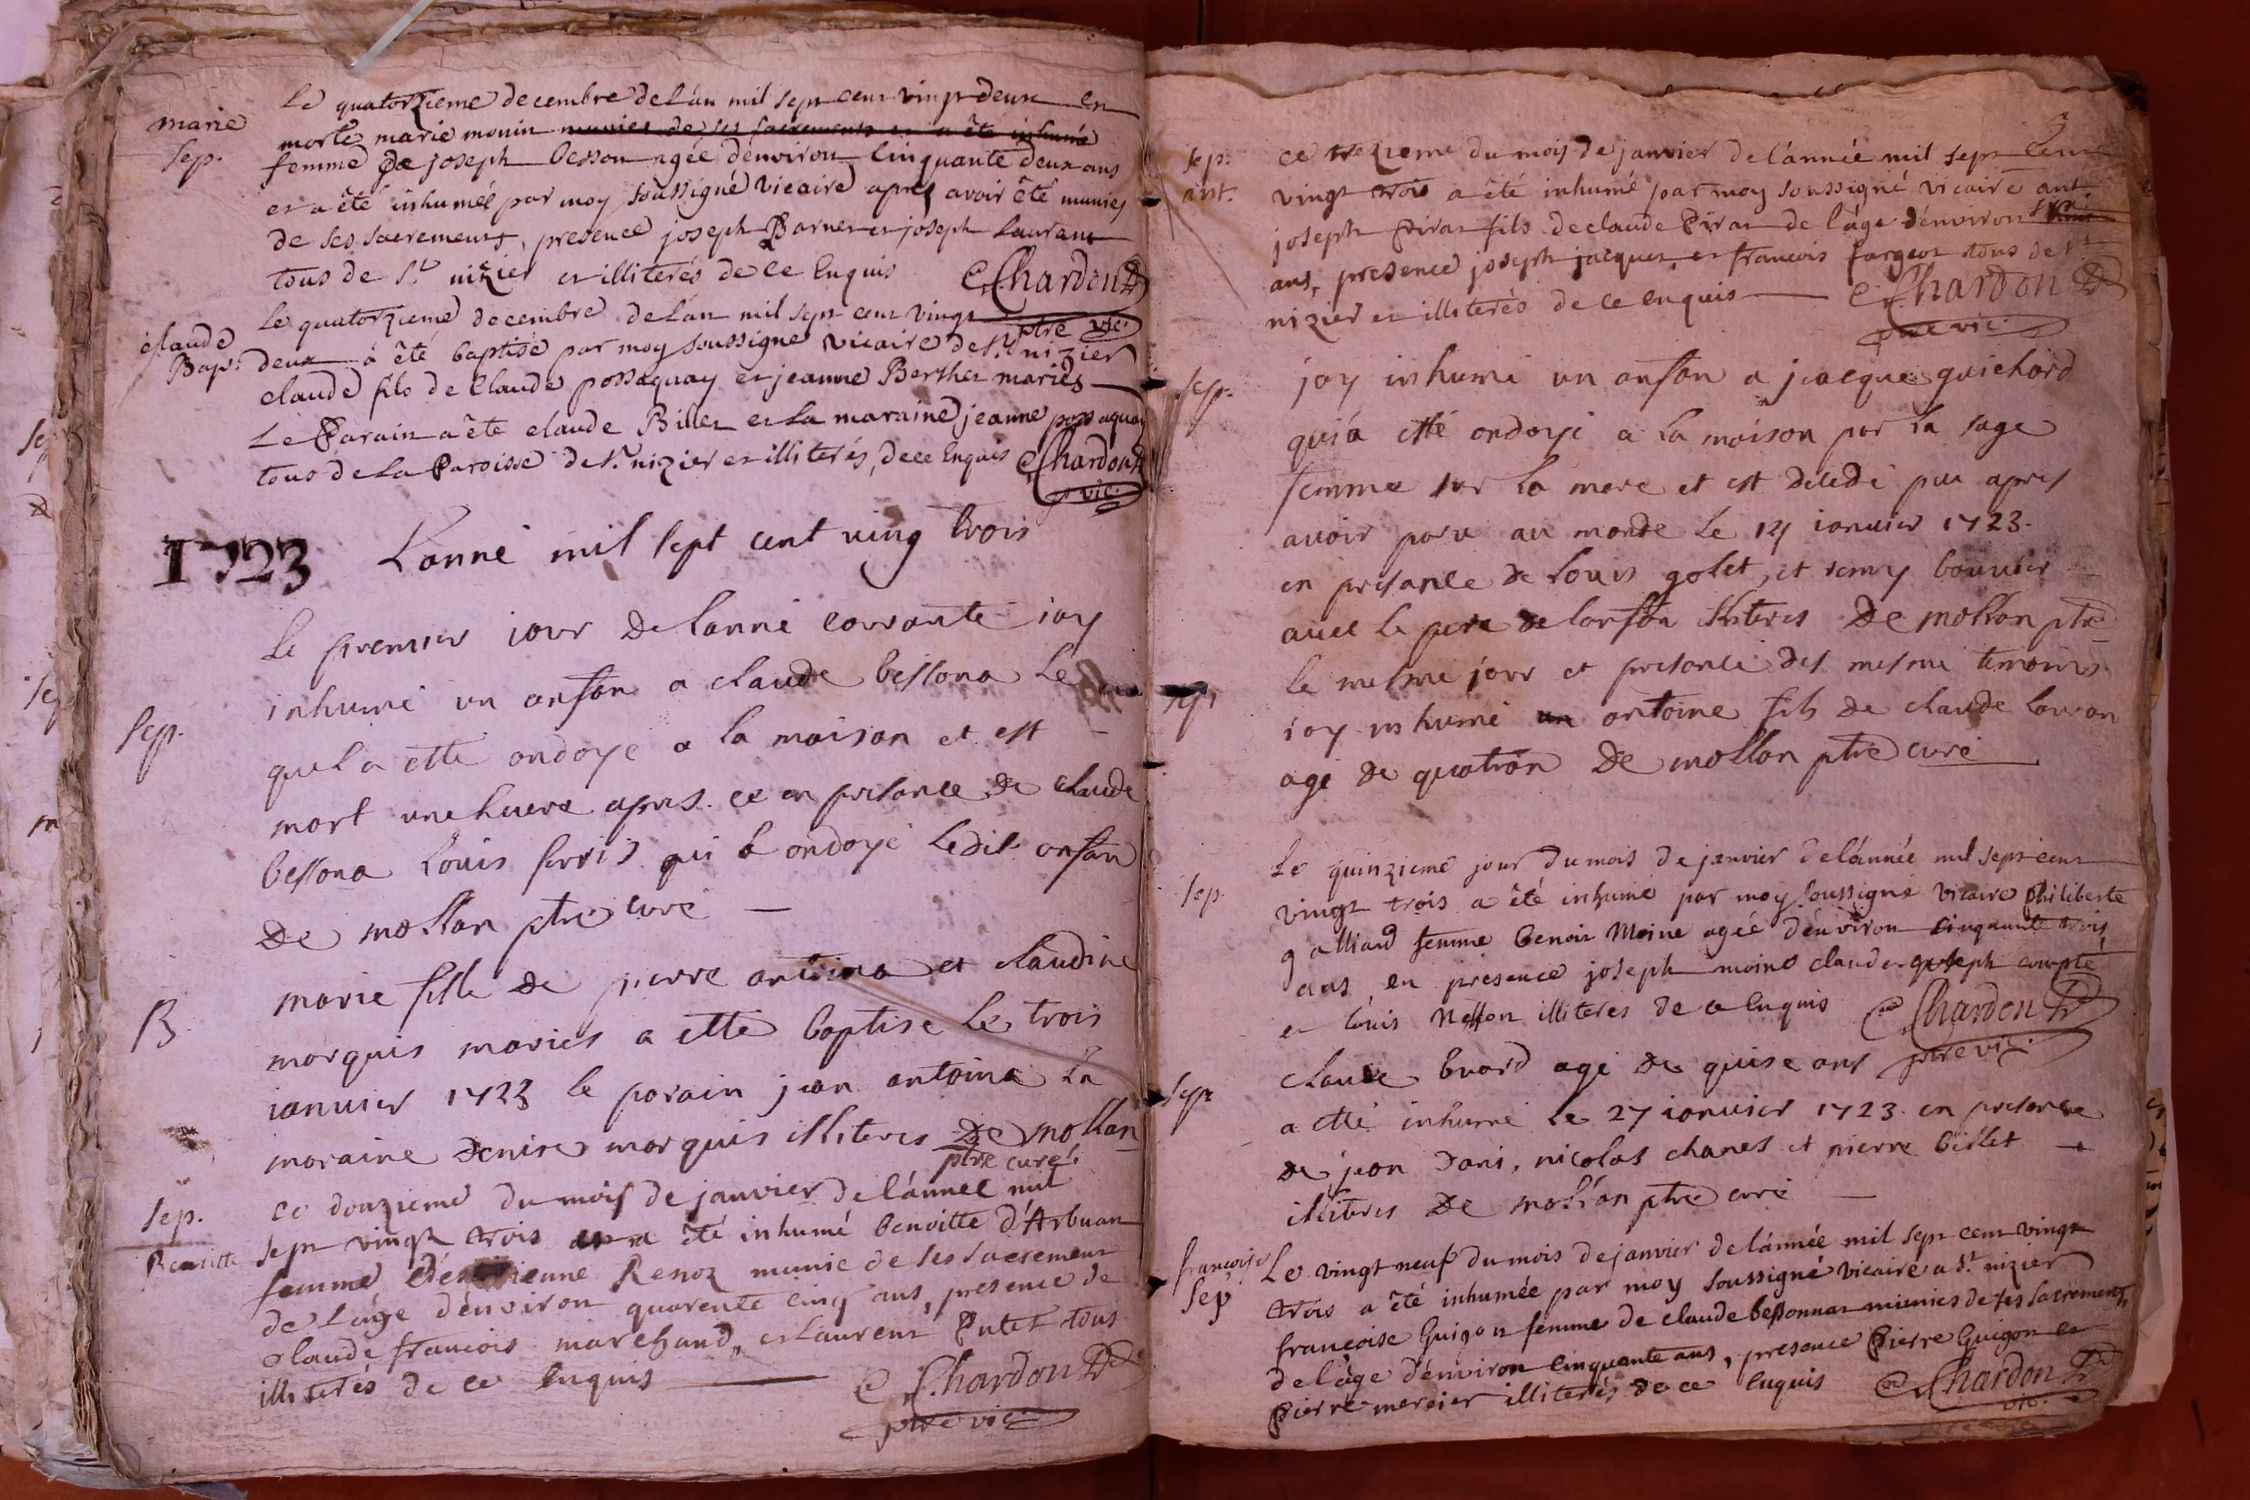 marie
Sep.
Le quatorzieme decembre de l'an mil sept cent vingt deux est
morte marie monin munies de ses sacrements et a été inhumé
femme de joseph besson agée d'environ cinquante deux ans
et a été inhumée par moy soussigné vicaire apres avoir été munies
de ses sacrements, presence joseph Barnet et joseph Laurant
tous de St nizier et illiterés de ce enquis Chardon
ptre vic.
claude
Bap.
Le quatorzieme decembre de l'an mil sept cent vingt
deux a été baptisé par moy soussigné vicaire de St nizier
claude fils de claude possaquay et jeanne Berthet mariés
Le Parain a été claude Billet et la maraine jeanne possaquay
tous de la Paroisse de St nizier et illiterés, de ce enquis Chardon
vic.
1723 L'anné mil sept cent ving trois
Sep.
Le premier jour de lanné courante iay
inhumé un anfan a claude bessona le
quel a etté ondoyé a la maison et est
mort une huere apres. ce en presance de claude
bessona Louis ferris qui a ondoyé ledit anfan
De mollan ptre curé
B
marie fille de pierre antoina et claudine
marquis mariés a etté baptise le trois
ianvier 1723 le parain jean antoina la
maraine denise marquis illiteres De mollan
ptre curé
Sep.
Benoitte
ce douzieme du mois de janvier de l'année mil
sept vingt trois a été inhumé benoitte d'Arbuan
femme d'estienne Renoz munie de ses sacrement
de l'age d'environ quarente cinq ans, presence de
claude francois marchand, et Laurent Putet tous
illiterés de ce enquis Chardon
ptre vic.
Sep.
ant.
ce trezieme du mois de janvier de l'année mil sept cent
vingt trois a été inhumé par moy soussigné vicaire ant.
joseph Pirat fils de claude Pirat de l'age d'environ
ans, presence joseph jacquet, et francois fargeot tous de St
nizier et illiterés de ce enquis Chardon
ptre vic.
Sep.
jay inhumé un anfan a jacque guichard
qui a etté ondoyé a la maison par la sage
femme sur la mere et est decedé peu apres
avoir paru au monde le 14 ianvier 1723.
en presance de Louis golet, et remy bouvier
avec le pere de lanfan illiteres De mollan ptre
Sep.
le mesme jour et presance des mesme temoins
iay inhumé un antoine fils de claude lauran
agé de quatran De mollan ptre curé
Sep.
Le quinzieme jour du mois de janvier de l'année mil sept cent
vingt trois a été inhumé par moy soussigné vicaire philiberte
galliard femme benoit Moine agée d'environ cinquante trois
ans en presence joseph moine claude joseph compte
et Louis Netton illiteres de ce enquis Chardon
ptre vic.
Sep.
claude buard agé de quise ans
a etté inhumé le 27 ianvier 1723. en presance
de jean dani, nicolas chanel et pierre billet
illiteres De mollan ptre curé
françoise
Sep
Le vingt neuf du mois de janvier de l'année mil sept cent vingt
trois a été inhumée par moy soussigné vicaire a St nizier
françoise Guigon femme de claude bessonnat munies de ses sacrements,
de l'age d'environ cinquante ans, presence Pierre Guigon et
Pierre mercier illiterés de ce enquis Chardon
vic.